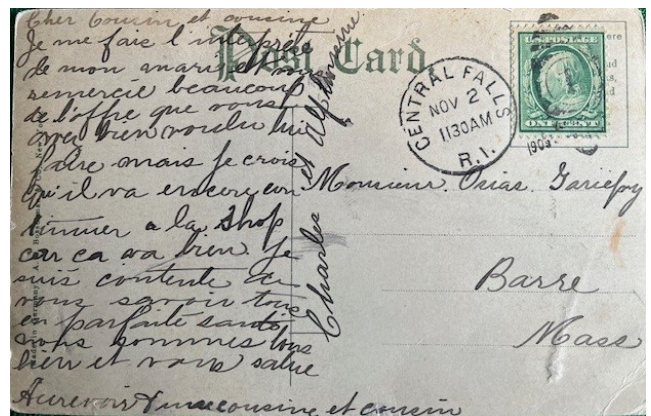 Cher Cousin et cousine
Je me fais l interprète
de mon mari et
remercie beaucoup
de l'offre que vous
avez bien voulu lui
faire mais je crois
qu'il va encore con
tinuer a la Shop
car ca va bien. Je
suis contente de
vous savoir tous
en parfaite santé
nous sommes tous
bien et vous salue
Aurevoir cousine et cousin
Charles et
Post Card.
CENTRAL FALLS
NOV 2
1130AM
R.I.
1909
U.S. POSTAGE
ONE CENT
Monsieur. Osias. Gariépy
Barre
Mass